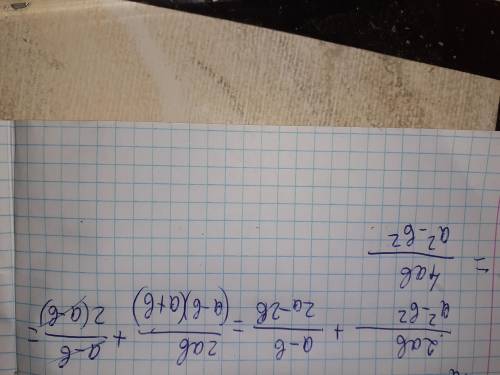 2ab/a²-b² + a-b/2a-2b = 2ab/(a-b)(a+b) + a-b/2(a-b) =
= 4ab/a²-b²